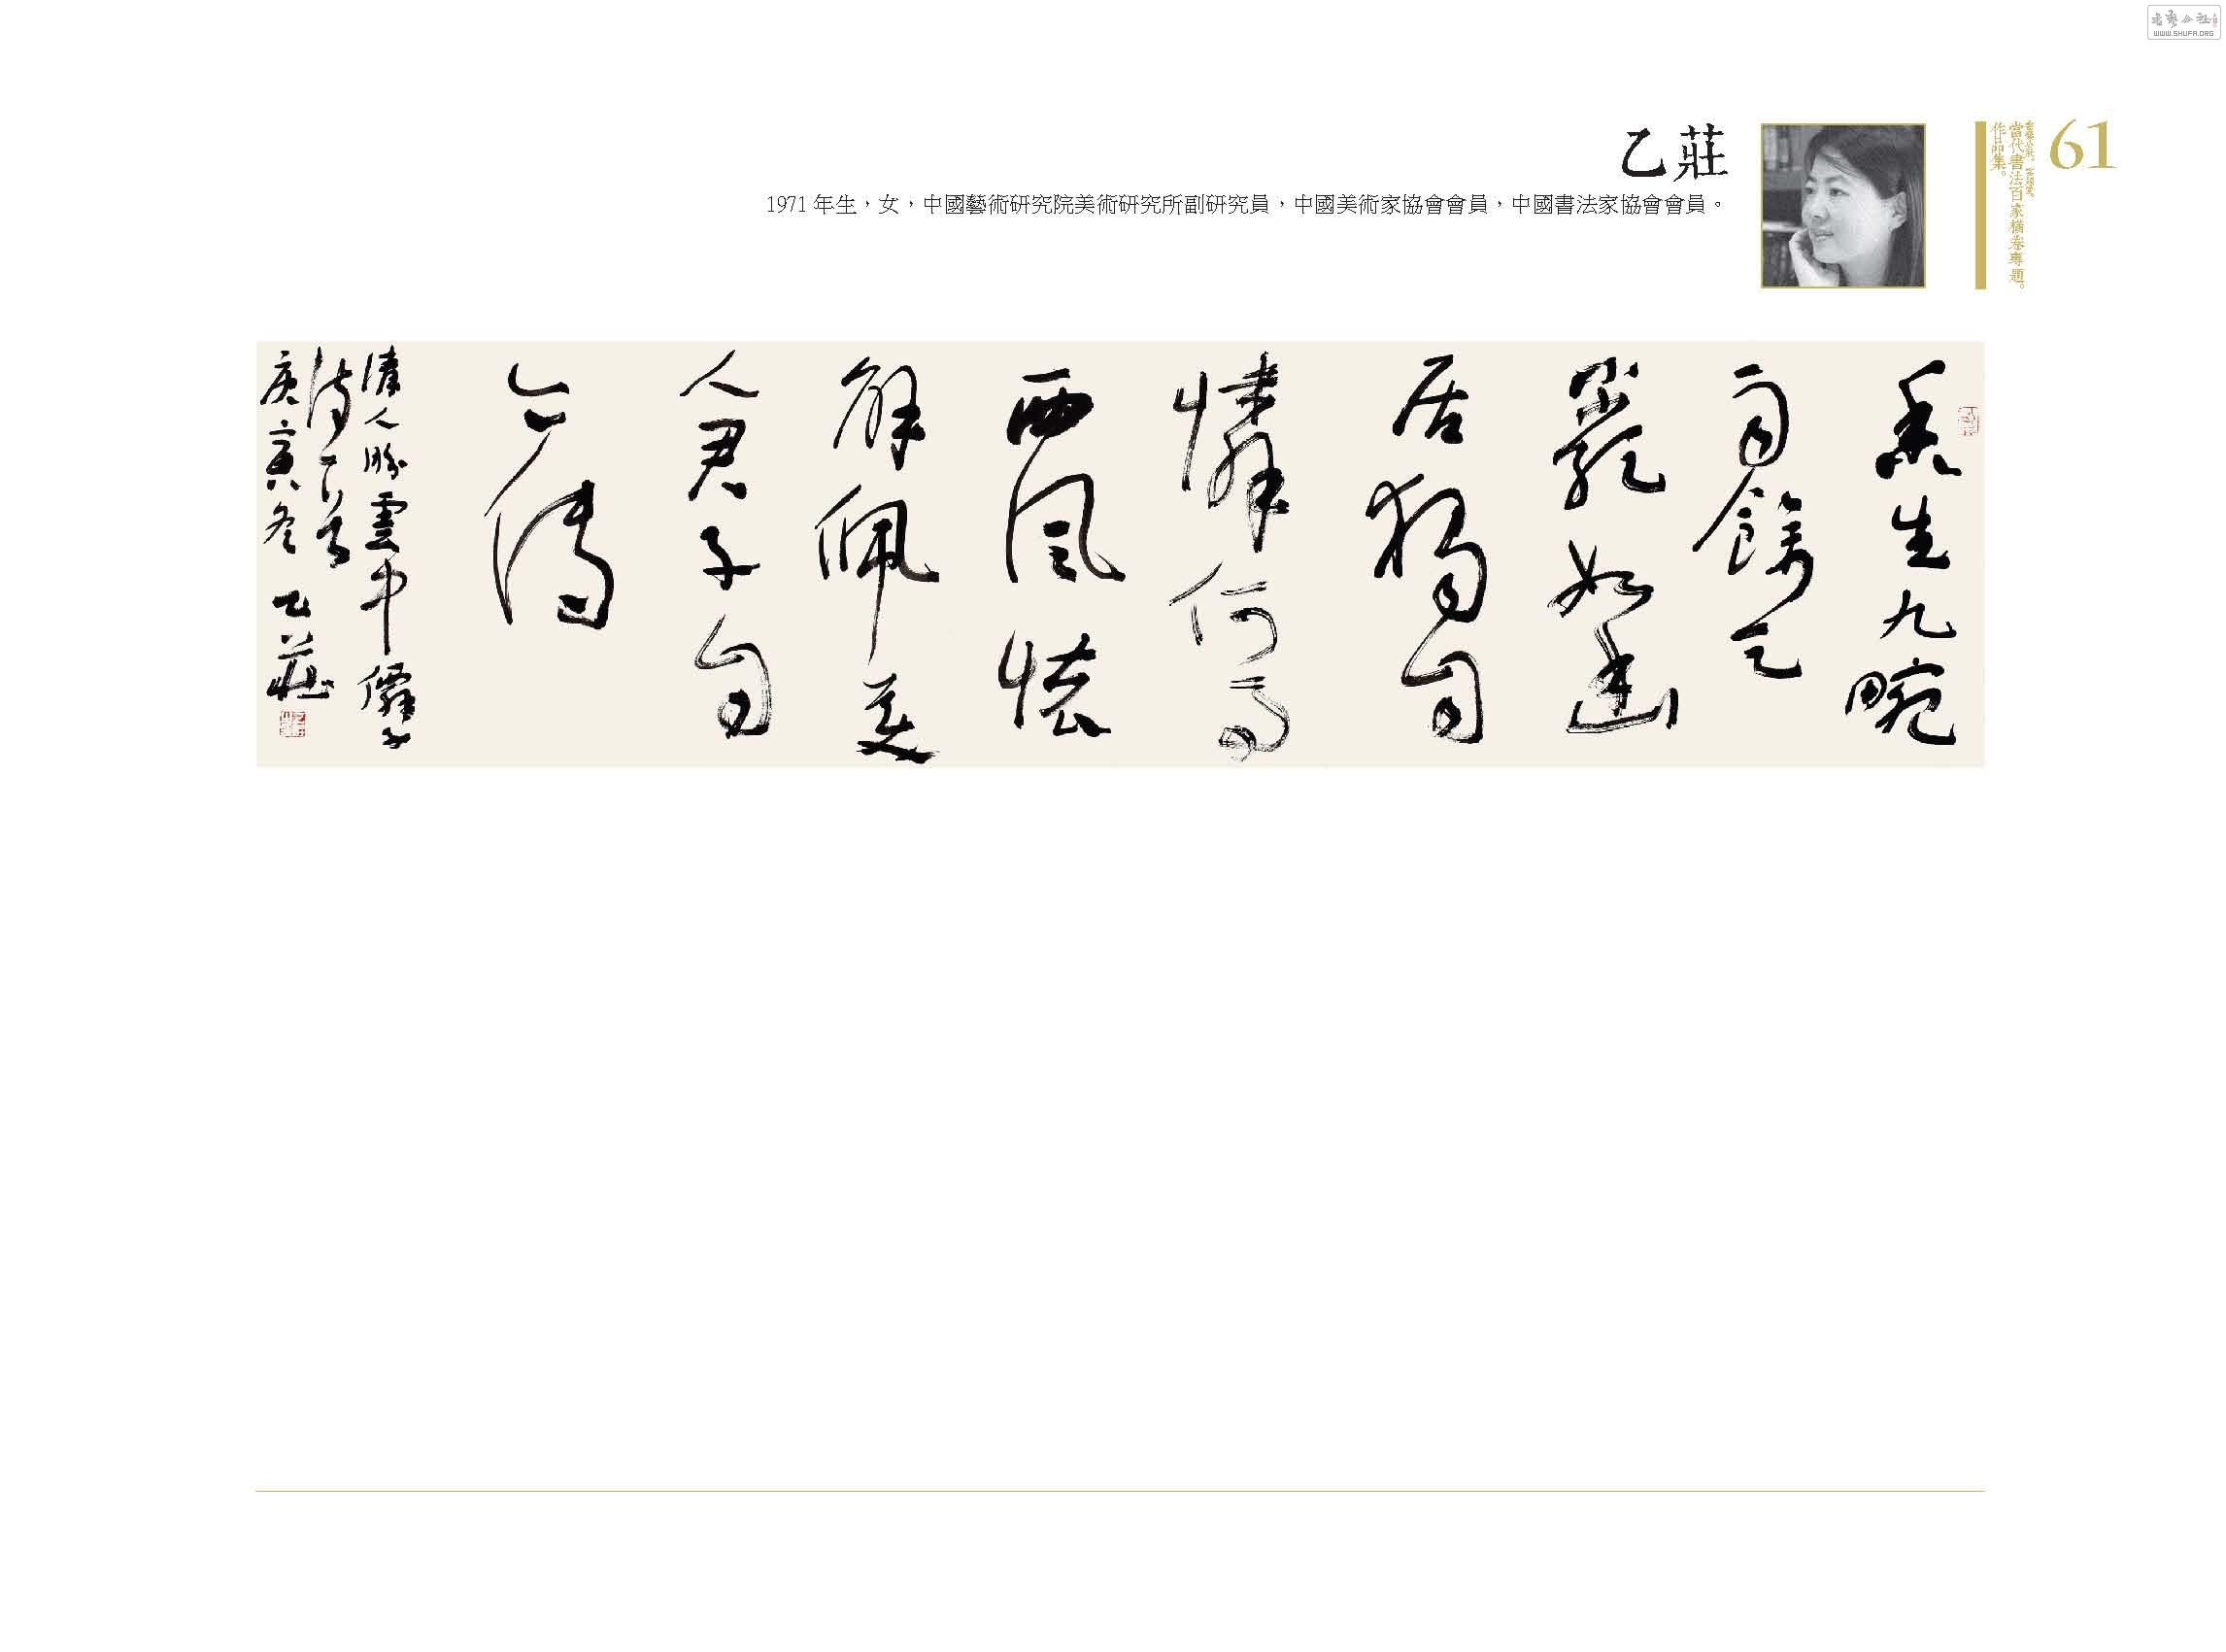 61
當代書法百家橫卷專題。
作品集。
乙莊
1971年生，女，中國藝術研究院美術研究所副研究員，中國美術家協會會員，中國書法家協會會員。
香生九畹
雨餘天
如幽
居獨自
憐何事
西風怯
解佩美
人君子自
合傳
清人雲中子
詩一首
庚寅冬 乙莊
WWW.SHUFA.ORG